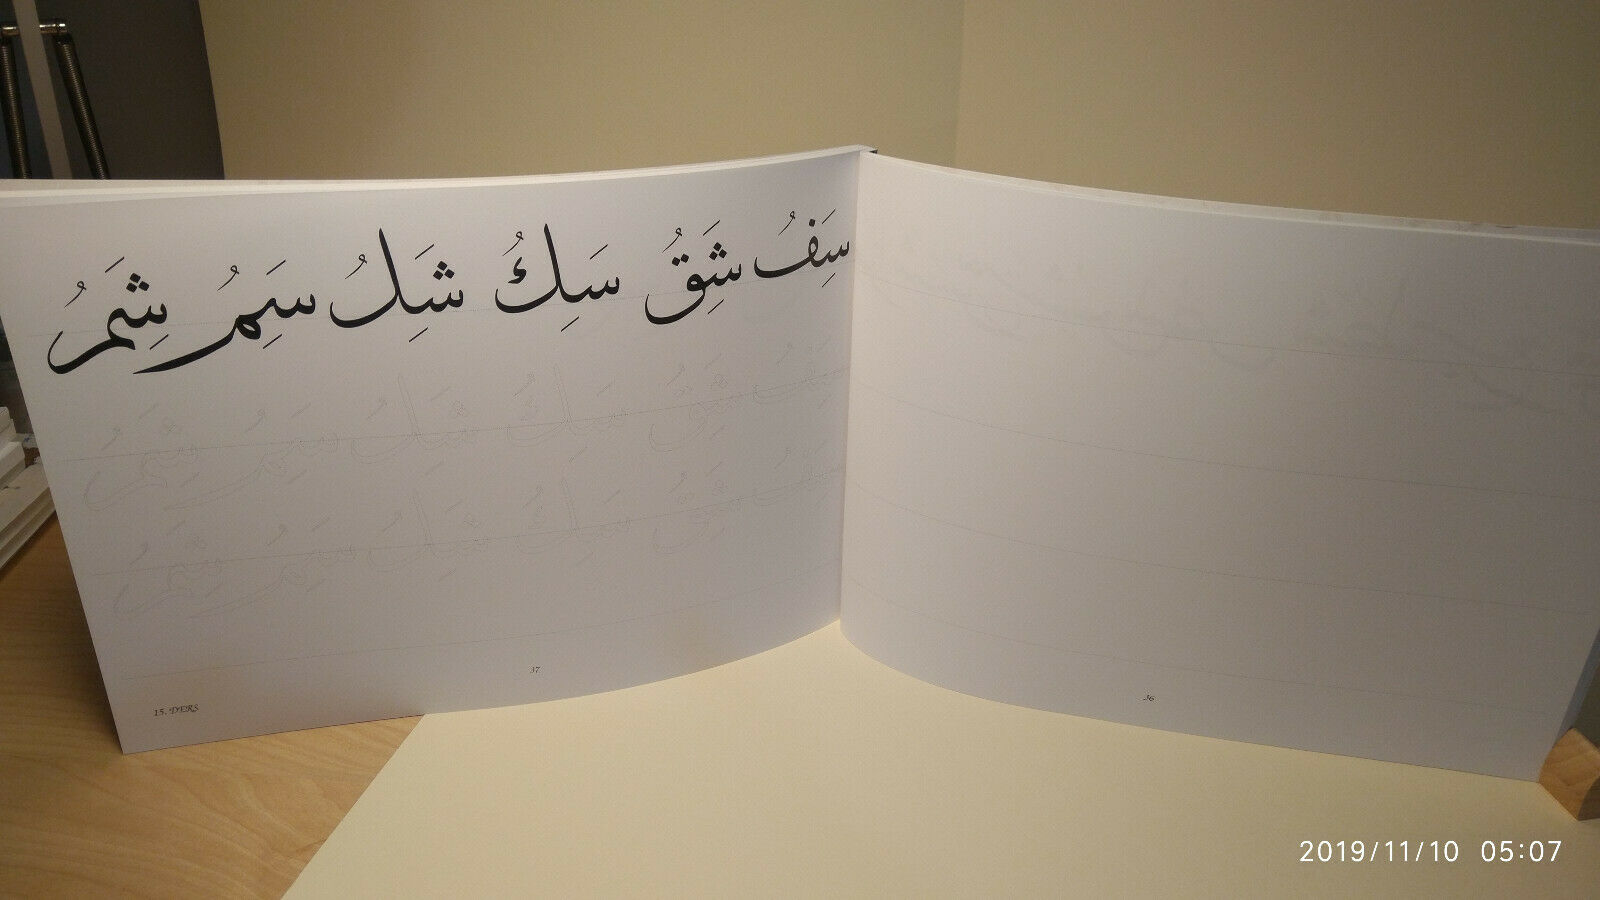 سَِفُ شَِقُ سَِكُ شَِلُ سَِمُ شَِمُ
سَِفُ شَِقُ سَِكُ شَِلُ سَِمُ شَِمُ
سَِفُ شَِقُ سَِكُ شَِلُ سَِمُ شَِمُ
37
15. DERS
36
2019/11/10 05:07